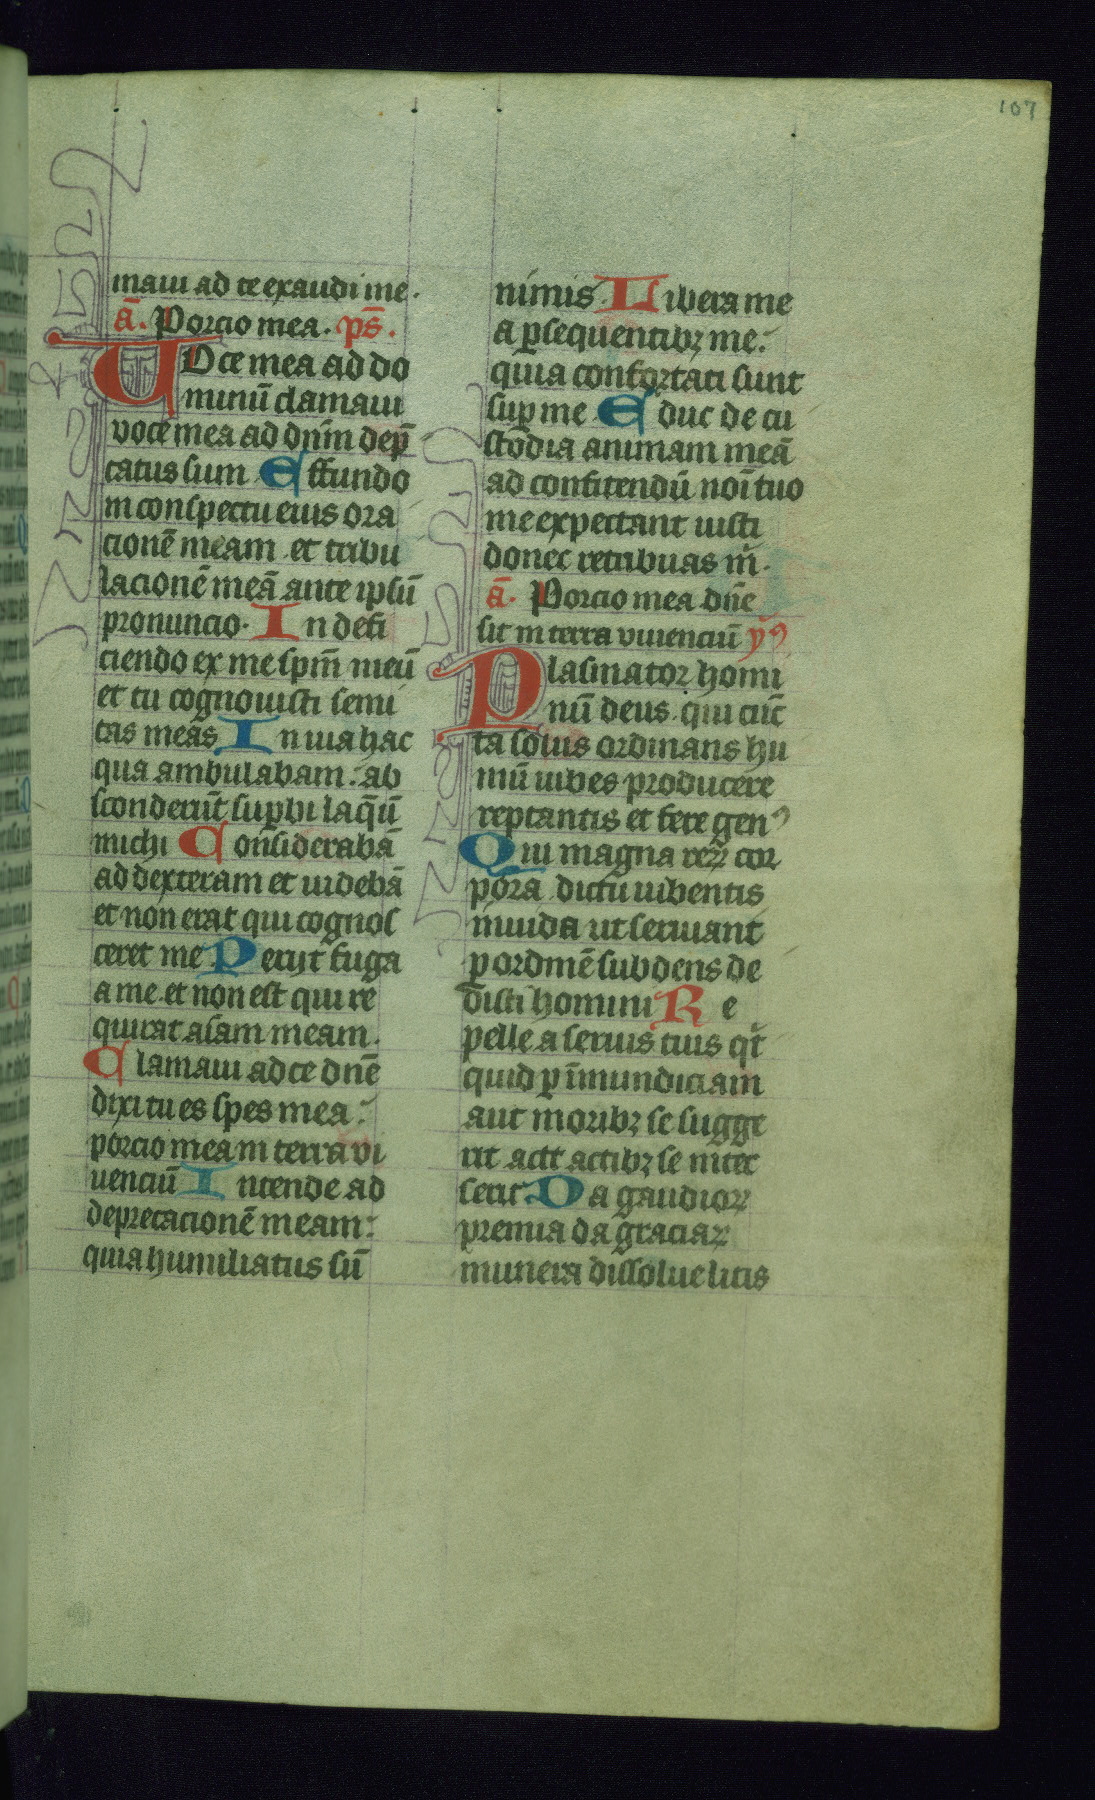 107
maui ad te exaudi me.
ā. Porcio mea. ps̄.
Uoce mea ad do
minū clamaui
voce mea ad dn̄m dep̄
catus sum Effundo
in conspectu eius ora
cionē meam et tribu
lacionē meā ante ipsū
pronuncio. In defi
ciendo ex me spm̄ meū
et tu cognouisti semi
tas meas In uia hac
qua ambulabam. ab
sconderūt sup̄bi laq̄ū
michi Considerabā
ad dexteram et uidebā
et non erat qui cognos
ceret me Perijt fuga
a me et non est qui re
quirat aīam meam.
Clamaui ad te dn̄e
dixi tu es spes mea.
porcio mea in terra vi
uenciū Intende ad
deprecacionē meam:
quia humiliatus sū
nimis. Libera me
a p̄sequentibꝫ me.
quia confortati sunt
sup̄ me Educ de cu
stodia animam meā
ad confitendū noī tuo
me expectant iusti
donec retribuas m̄.
ā. Porcio mea dn̄e
sit in terra viuenciū yꝰ
Plasmator homi
nū deus. qui cūc
ta solus ordinans hu
mū iubes producere
reptantis et fere genꝰ
Qui magna reꝝ cor
pora dictu iubentis
iuuida ut seruiant
p̄ ordinē subdens de
disti homini Re
pelle a seruis tuis q̄t
quid p̄ īmundiciam
aut moribꝫ se sugge
rit actt actibꝫ se inter
serit Da gaudioꝝ
premia da graciaꝝ
munera dissolue litis